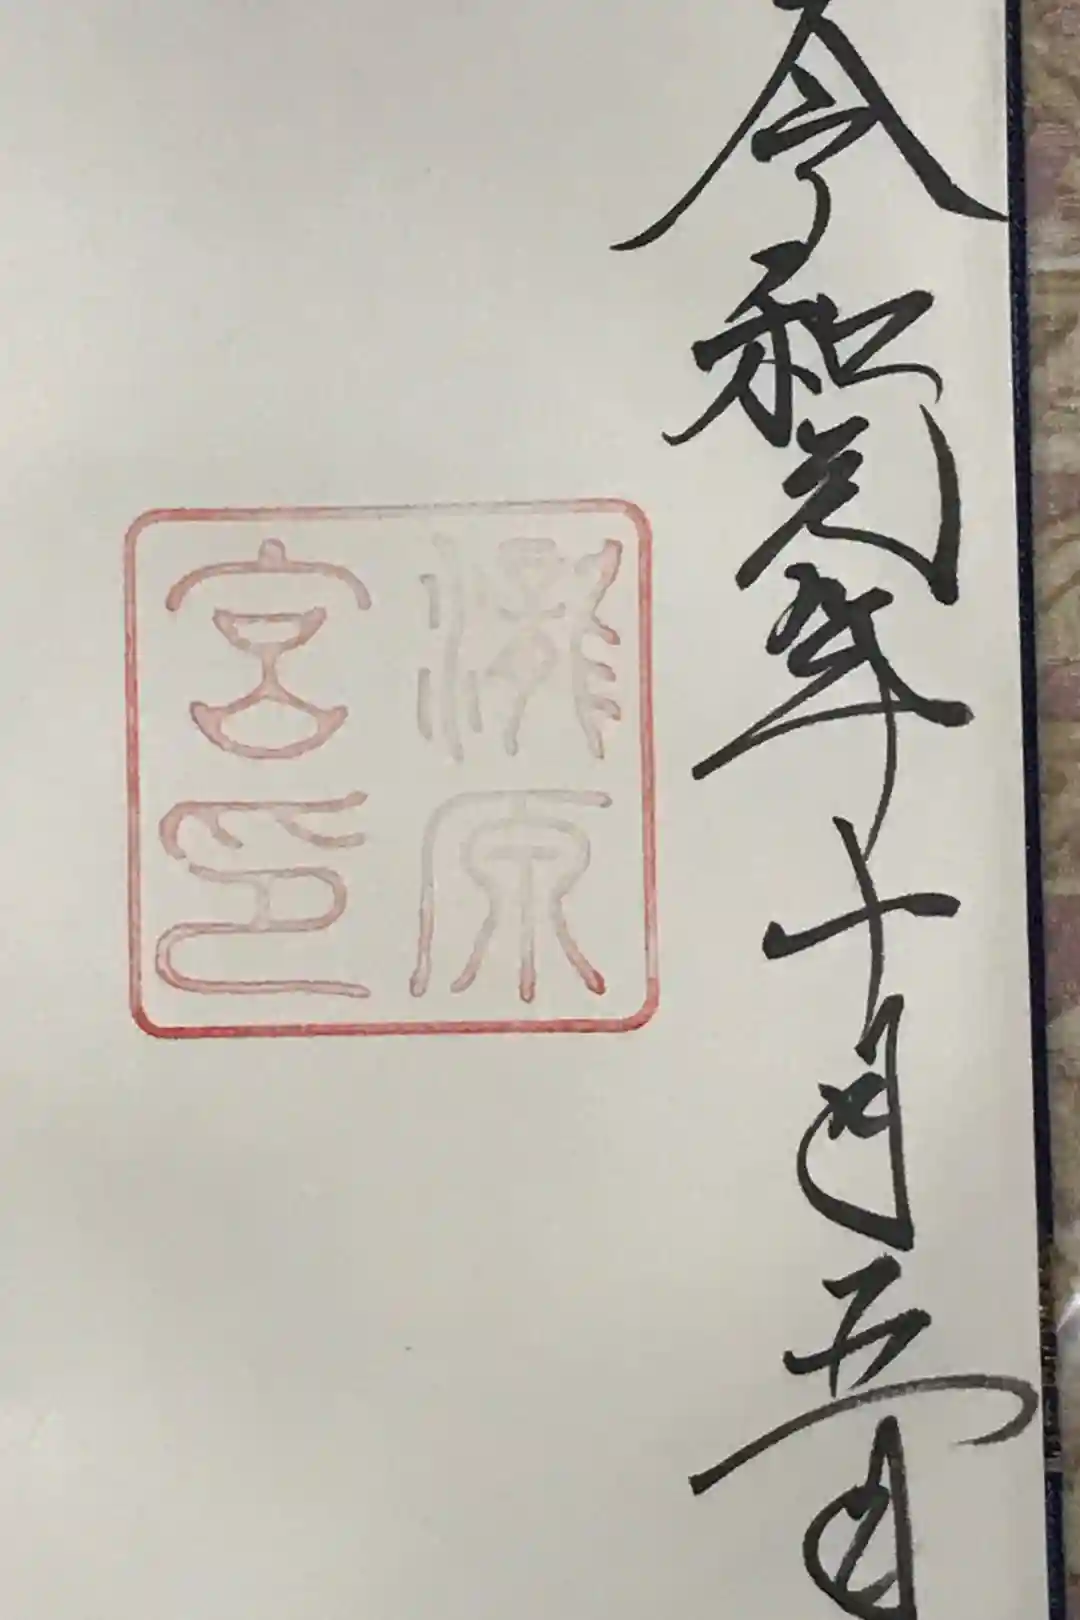 令和元年十月五日
瀧原
宮印